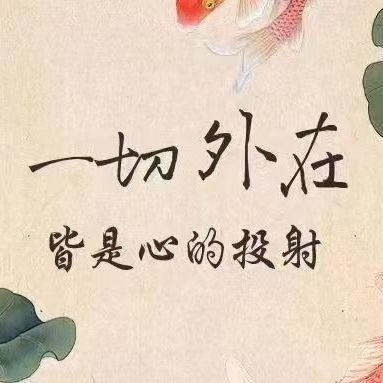 一切外在
皆是心的投射